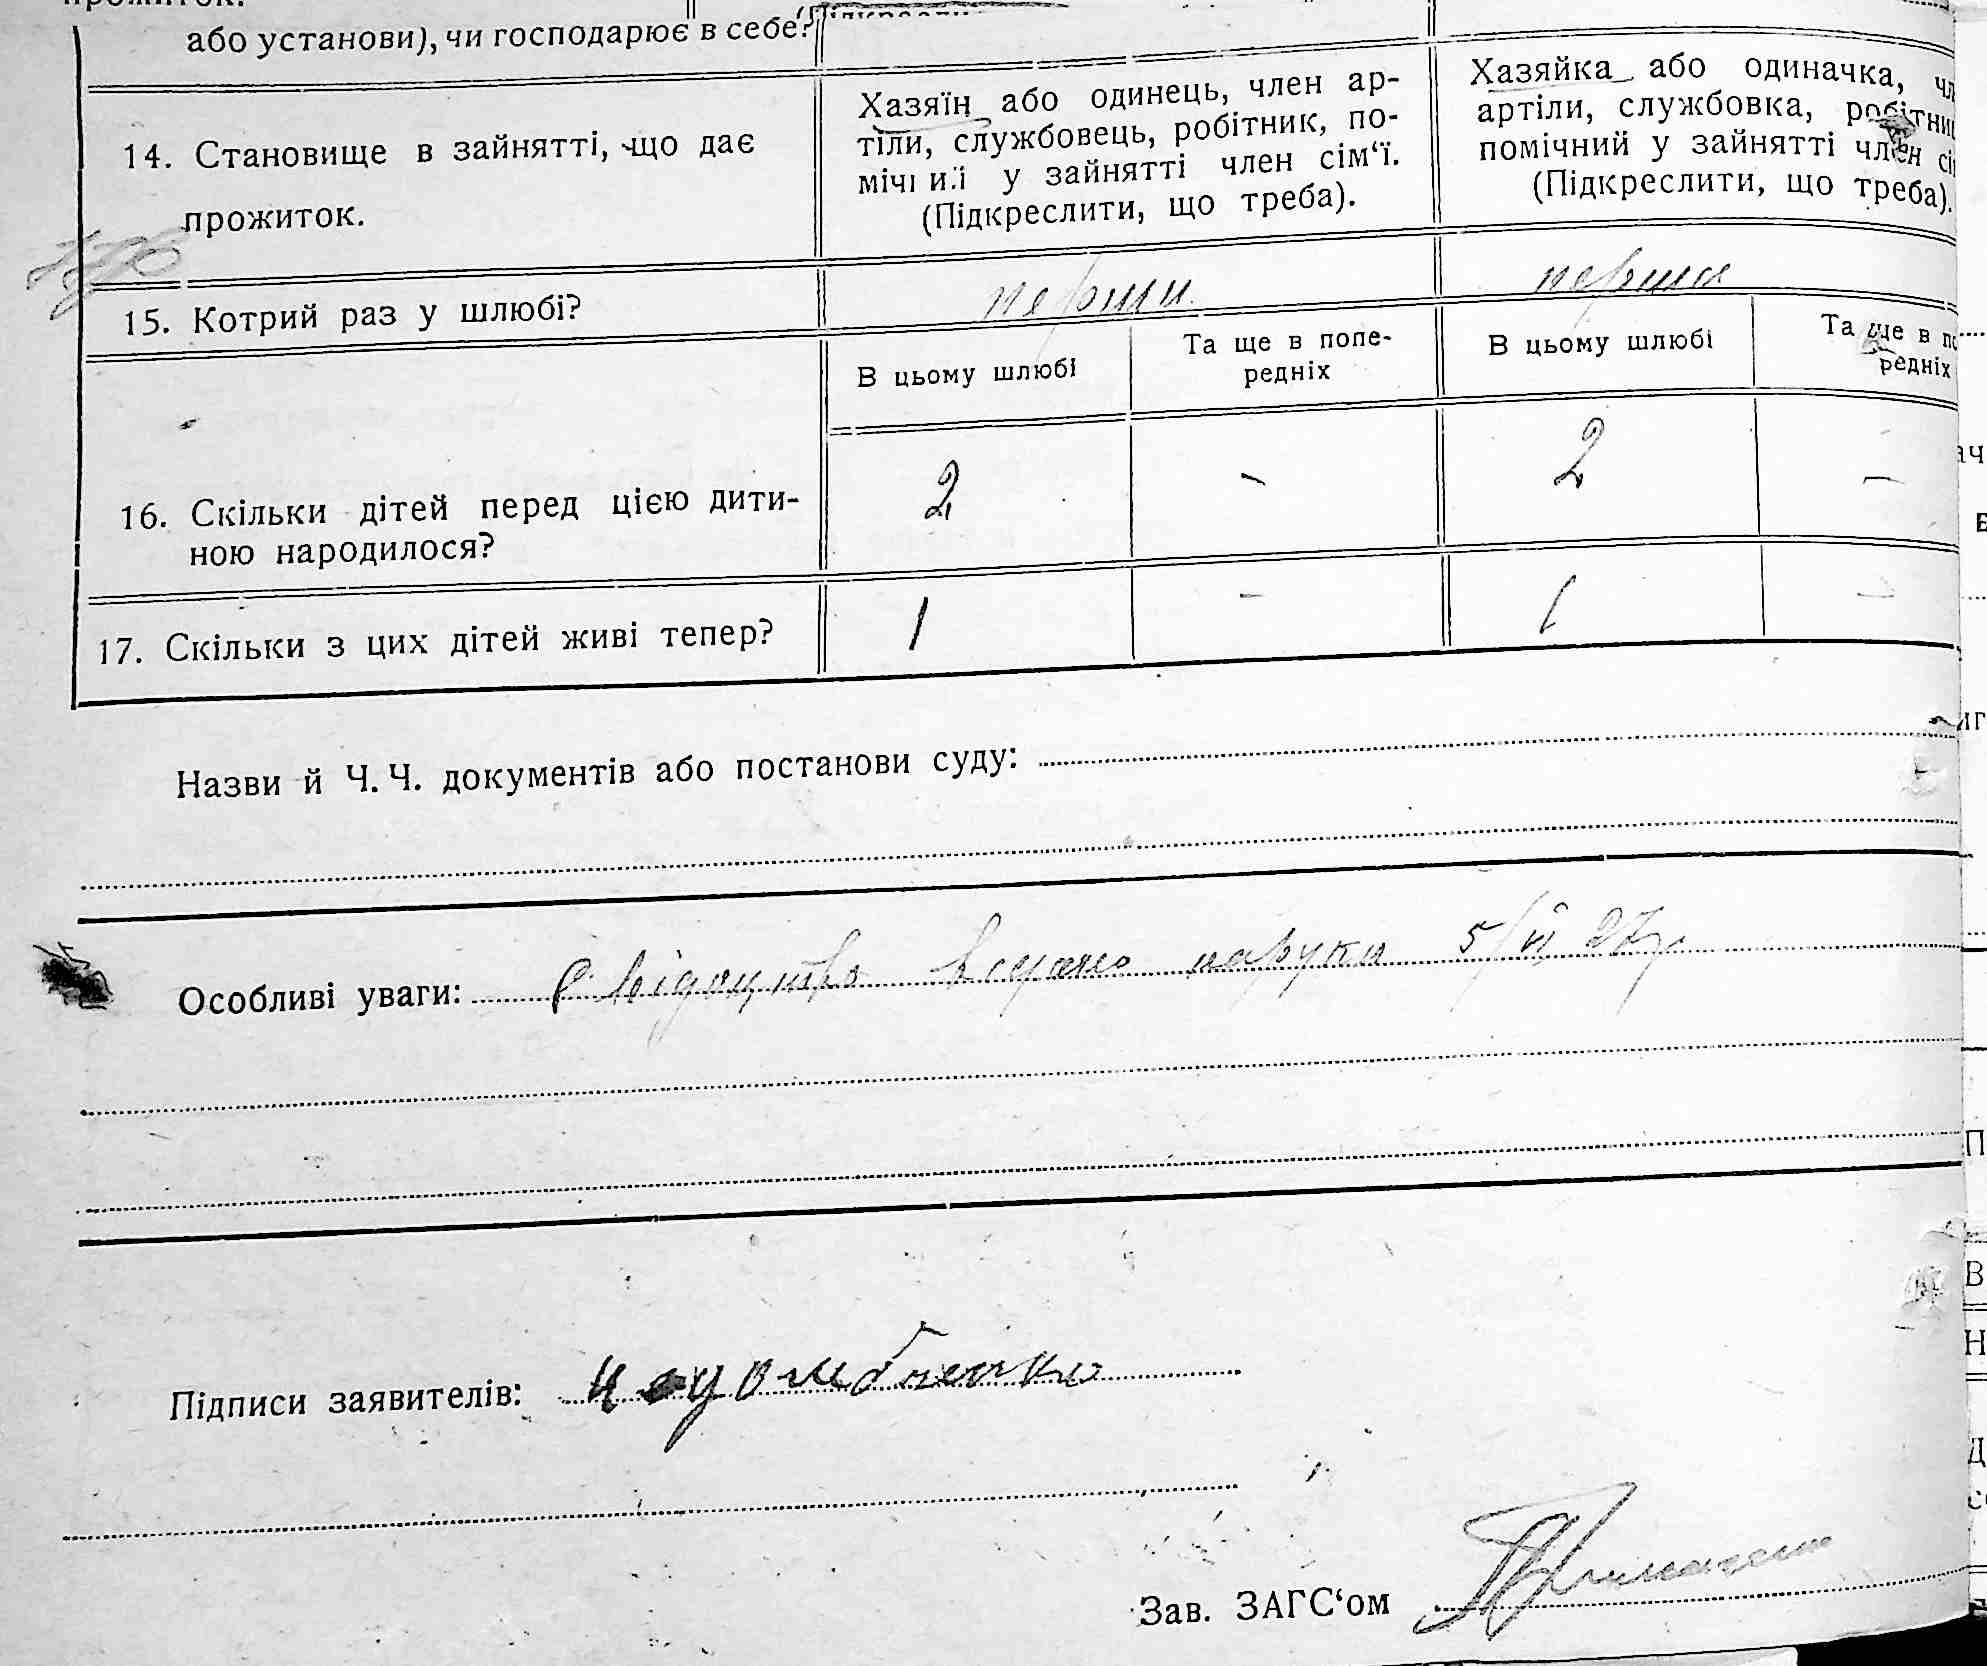 або установи), чи господарює в себе?
14. Становище в зайнятті, що дає
прожиток.
Хазяїн або одинець, член ар-
тіли, службовець, робітник, по-
мічний у зайнятті член сім‘ї.
(Підкреслити, що треба).
Хазяйка або одиначка, чл
артіли, службовка, робітниц
помічний у зайнятті член сі
(Підкреслити, що треба).
15. Котрий раз у шлюбі?
перший
перший
В цьому шлюбі
Та ще в попе-
редніх
В цьому шлюбі
Та ще в по
редніх
16. Скільки дітей перед цією дити-
ною народилося?
2
-
2
-
17. Скільки з цих дітей живі тепер?
1
-
1
-
Назви й Ч. Ч. документів або постанови суду:
Особливі уваги: Свідоцтво видано на руки 5/VI 27р
Підписи заявителів:
Зав. ЗАГС‘ом